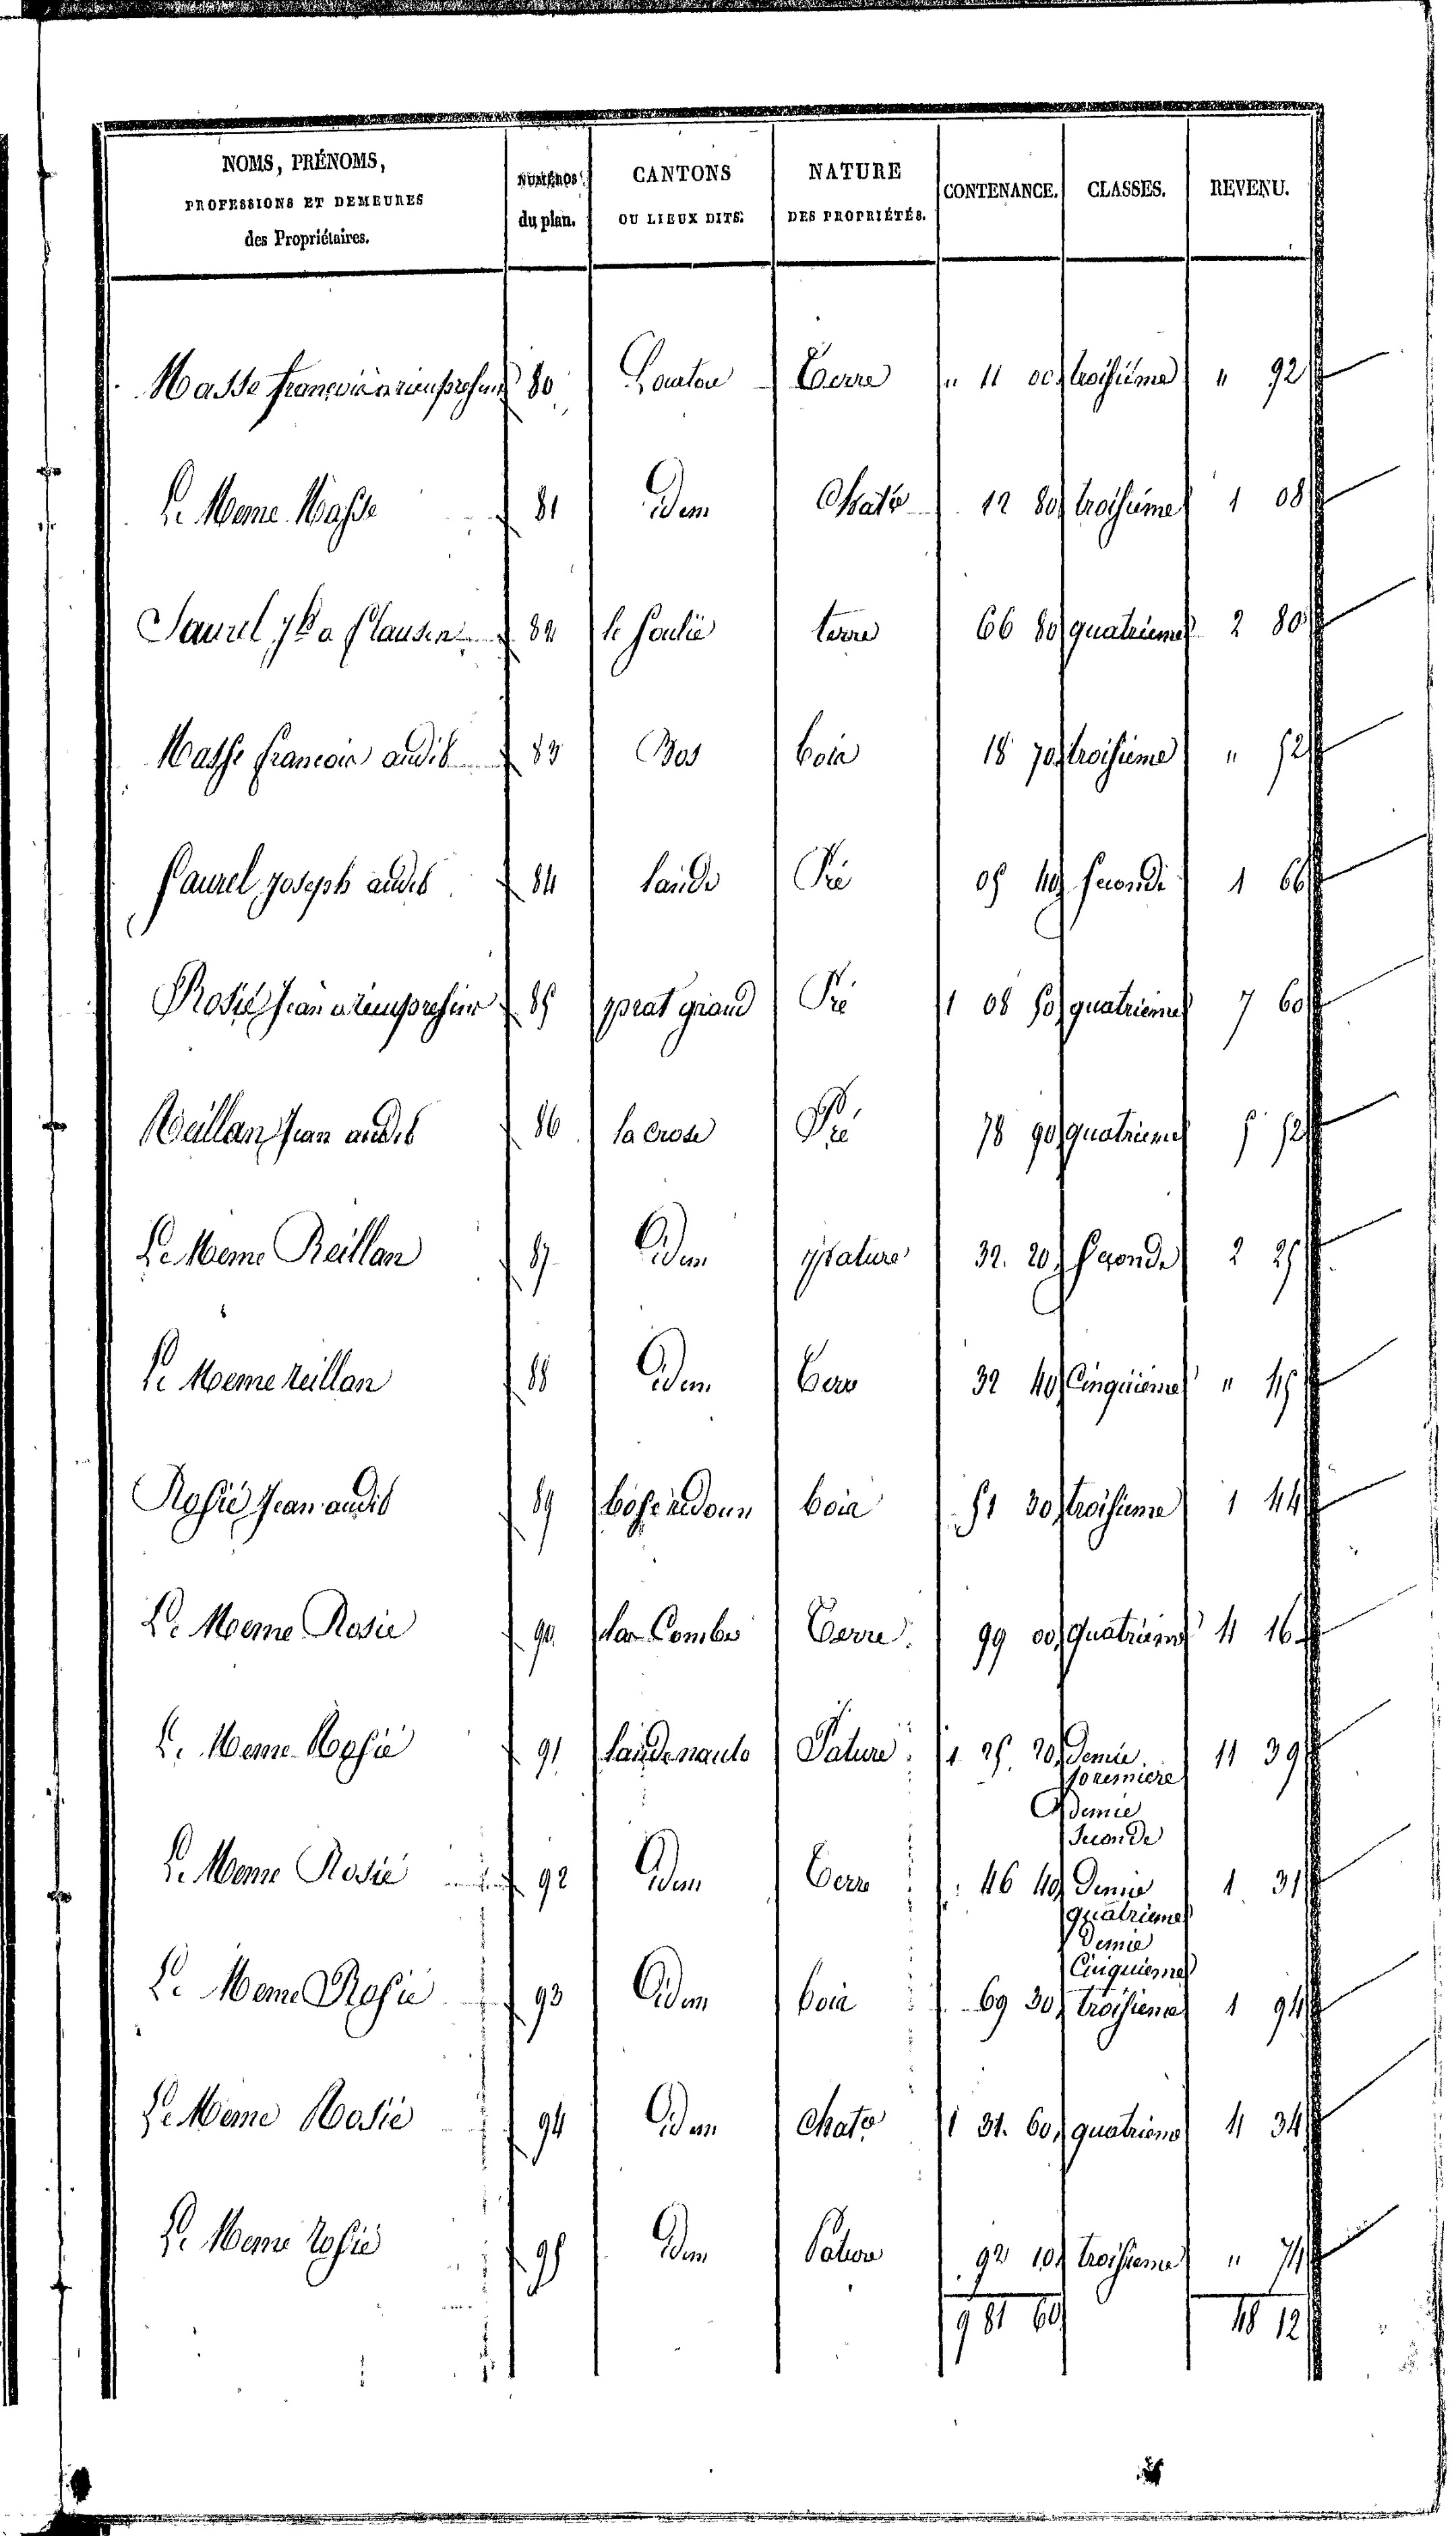 NOMS, PRÉNOMS,
PROFESSIONS ET DEMEURES
des Propriétaires.
NUMÉROS
du plan.
CANTONS
OU LIEUX DITS.
NATURE
DES PROPRIÉTÉS.
CONTENANCE.
CLASSES.
REVENU.
Masse françois a 80 Terre " 11 00 troisieme " 92
Le Meme Masse 81 idem Chate 12 80 troisieme 1 08
Saurel a 82 le terre 66 80 quatrieme 2 80
Masse francois audit 83 Bos bois 18 70 troisieme " 52
Saurel joseph audit 84 lande Pré 05 40 seconde 1 66
Rosié Jean a 85 prat grand Pré 1 08 50 quatrieme 7 60
Reillan Jean audit 86 la crose Pré 78 90 quatrieme 5 52
Le Meme Reillan 87 idem pature 32 20 seconde 2 25
Le Meme reillan 88 idem Terre 32 40 Cinquieme " 45
Rosié Jean audit 89 bosc redoun bois 51 30 troisieme 1 44
Le Meme Rosie 90 Combes Terre 99 00 quatrieme 4 16
Le Meme Rosié 91 lande naute Pature 1 25 20 demie 11 39
premiere
demie
seconde
Le Meme Rosié 92 idem Terre 46 40 demie 1 31
quatrieme
demie
Cinquieme
Le Meme Rosié 93 idem bois 69 30 troisieme 1 94
Le Meme Rosié 94 idem Chate 1 31 60 quatrieme 4 34
Le Meme rosié 95 idem Pature 92 10 troisieme " 74
9 81 60 48 12